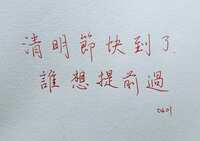 清明節快到了.
誰想提前過
0401